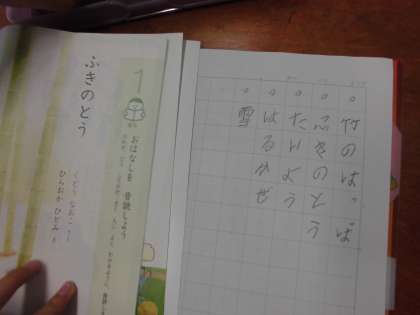 ○竹のはっぱ
○ふきのとう
○たいよう
○はるかぜ
○雪
1
おはなしを 音読しよう
ふきのとう
くどう なおこ